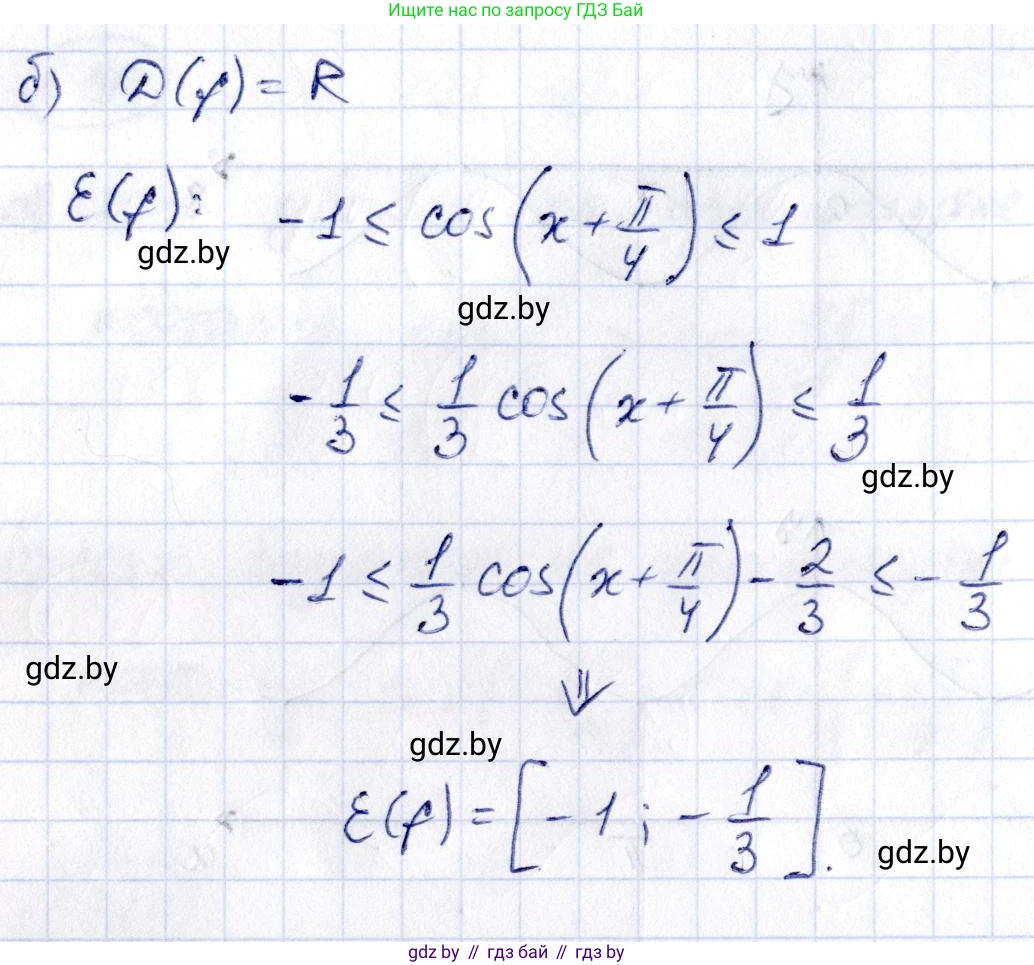 Ищите нас по запросу ГДЗ Бай
б) D(f) = R
E(f): -1 ≤ cos(x + π/4) ≤ 1
gdz.by
gdz.by
-1/3 ≤ 1/3 cos(x + π/4) ≤ 1/3
gdz.by
-1 ≤ 1/3 cos(x + π/4) - 2/3 ≤ -1/3
gdz.by
⇓
gdz.by
E(f) = [-1; -1/3].
gdz.by
gdz.by // гдз бай // гдз by